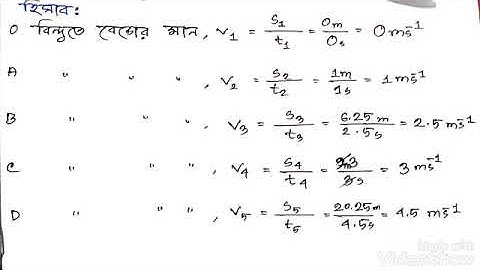 হিসাব:
O বিন্দুতে বেগের মান, V₁ = S₁/t₁ = 0m/0s = 0 ms⁻¹
A " " ", V₂ = S₂/t₂ = 1m/1s = 1 ms⁻¹
B " " ", V₃ = S₃/t₃ = 6.25 m/2.5 s = 2.5 ms⁻¹
C " " ", V₄ = S₄/t₄ = /3s = 3 ms⁻¹
D " " ", V₅ = S₅/t₅ = 20.25m/4.5s = 4.5 ms⁻¹
Made with
VideoShow